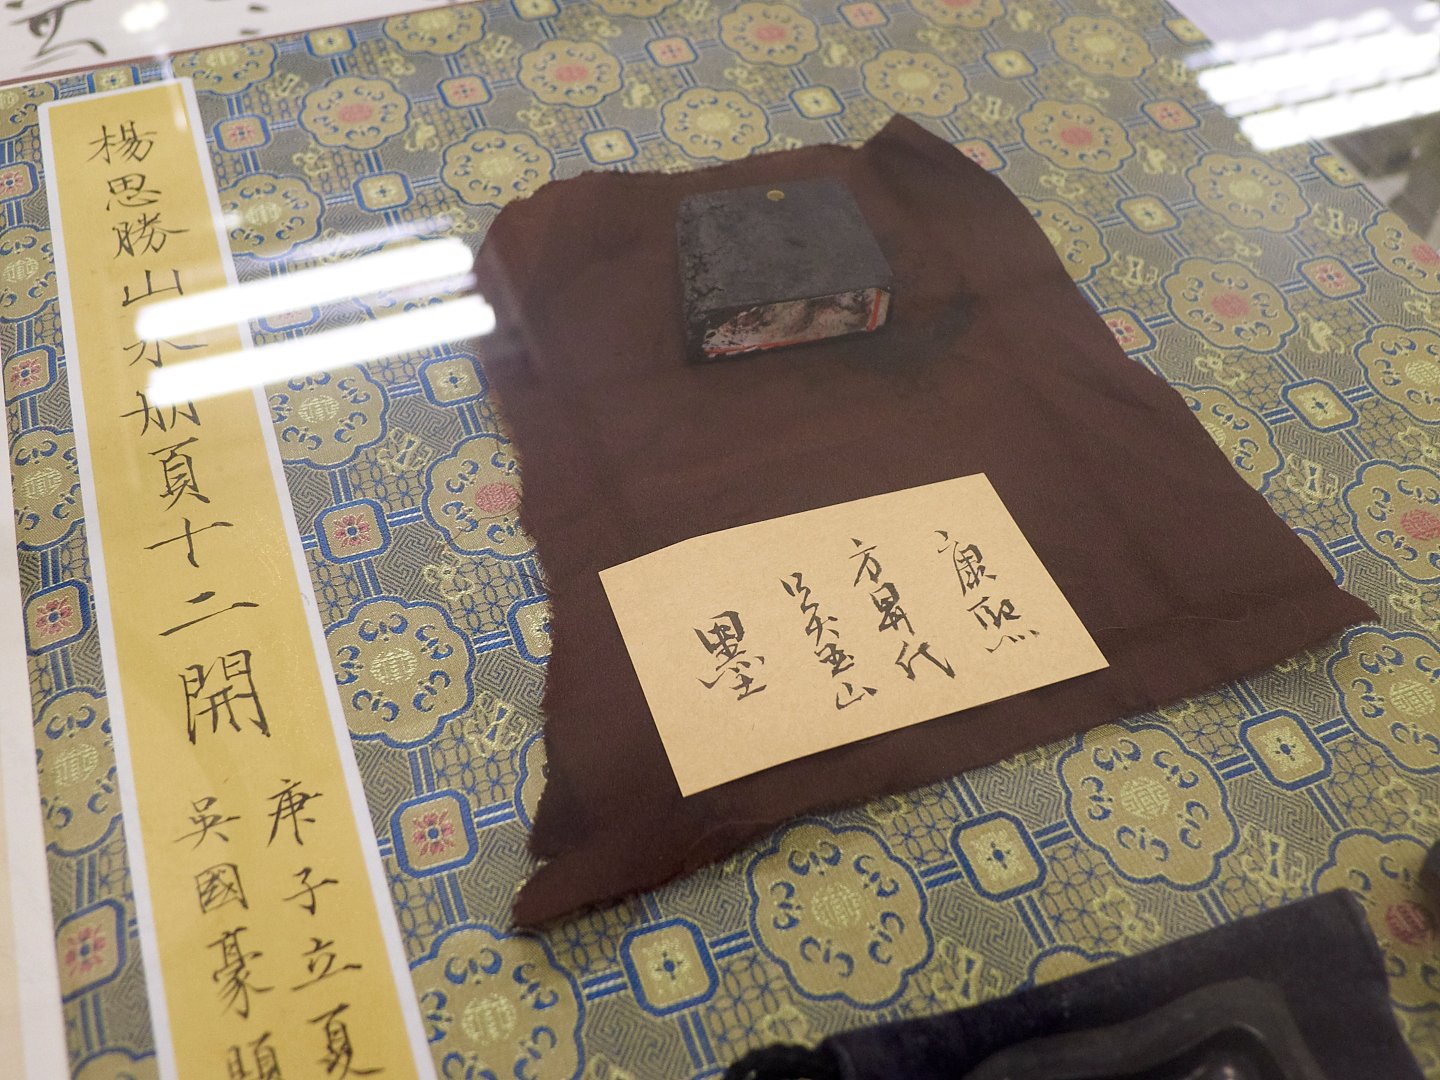 楊思勝山水册頁十二開
庚子立夏
吳國豪
康熙
方昇代
吳玉山
墨